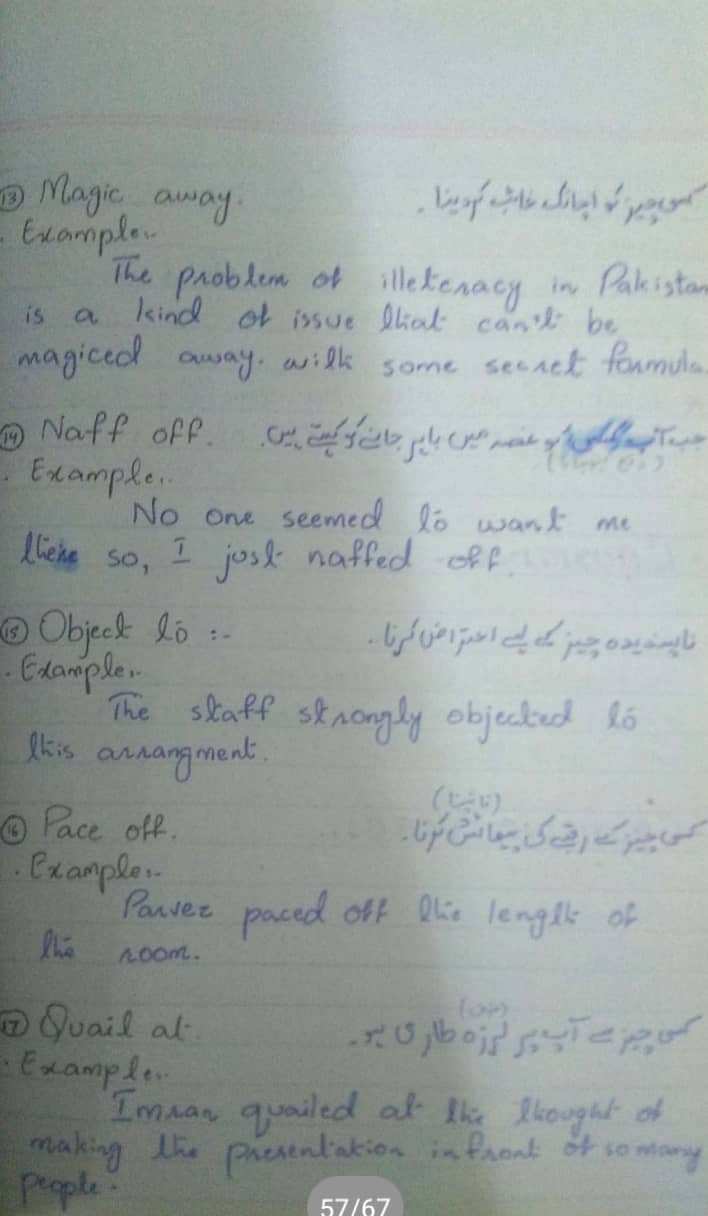 ⑬ Magic away. کسی چیز کو اچانک غائب کر دینا۔
. Example:-
The problem of illeteracy in Pakistan
is a kind of issue that can't be
magiced away. with some secret formula.
⑭ Naff off. جب آپ کو غصہ میں باہر جانے کو کہتے ہیں۔
. Example:-
No one seemed to want me
there so, I just naffed off.
⑮ Object to :- ناپسندیدہ چیز کے لیے اعتراض کرنا۔
. Example:-
The staff strongly objected to
this arrangment.
(ناپنا)
⑯ Pace off. کسی چیز کے رقبے کی پیمائش کرنا۔
. Example:-
Parvez paced off the length of
the room.
⑰ Quail at. کسی چیز سے آپ پر لرزہ طاری ہو۔
. Example:-
Imran quailed at the thought of
making the presentation infront of so many
people.
57/67